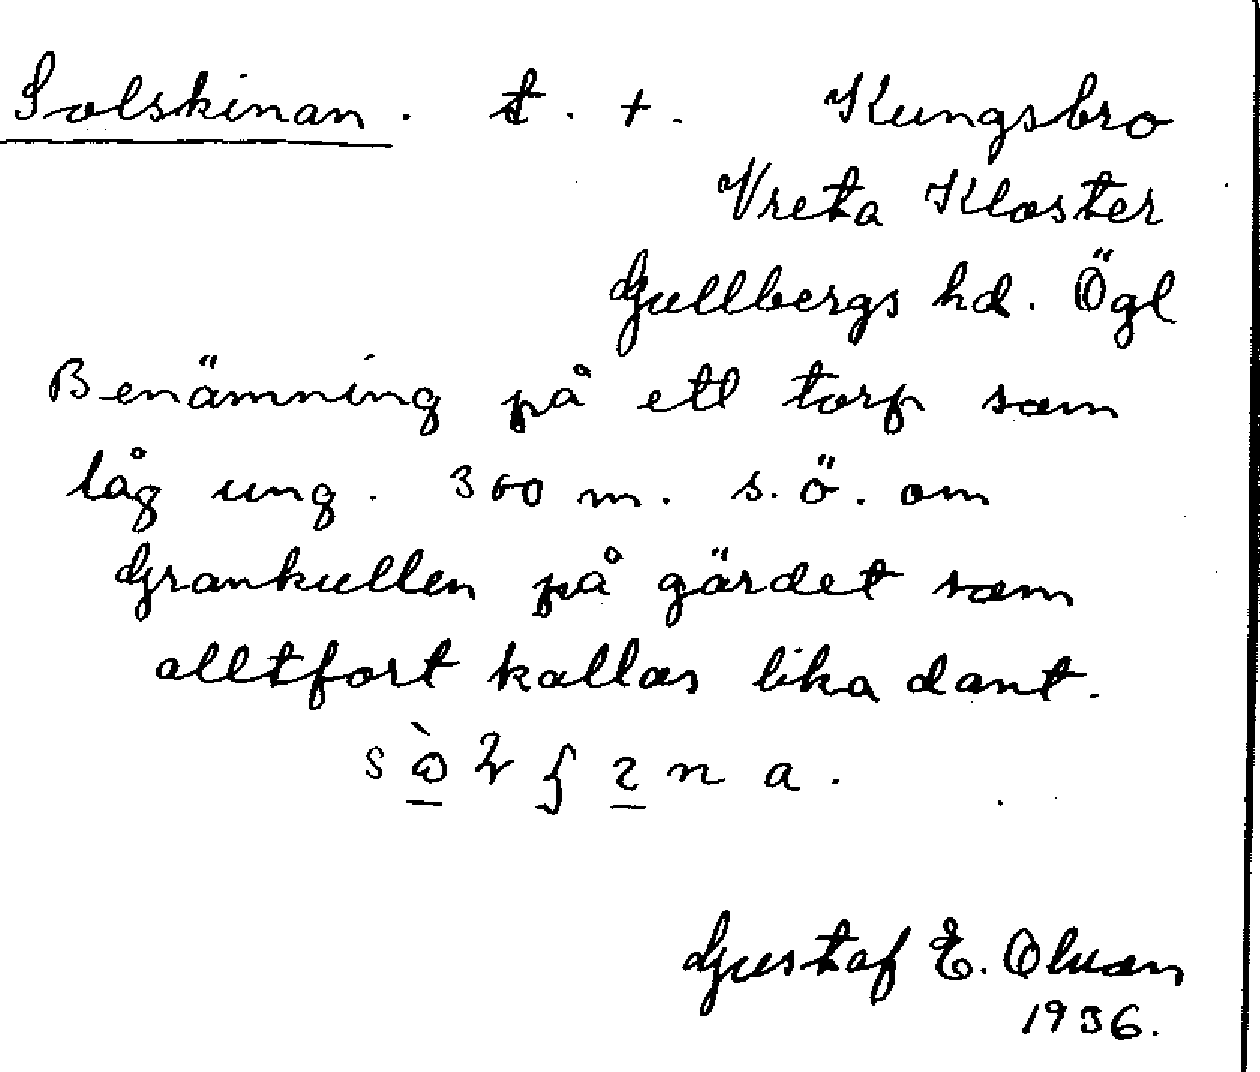 Solskinan. t. +. Kungsbro
Vreta Kloster
Gullbergs hd. Ögl
Benämning på ett torp som
låg ung. 300 m. s.ö. om
Grankullen på gärdet som
alltfort kallas lika dant.
Gustaf E. Olson
1936.